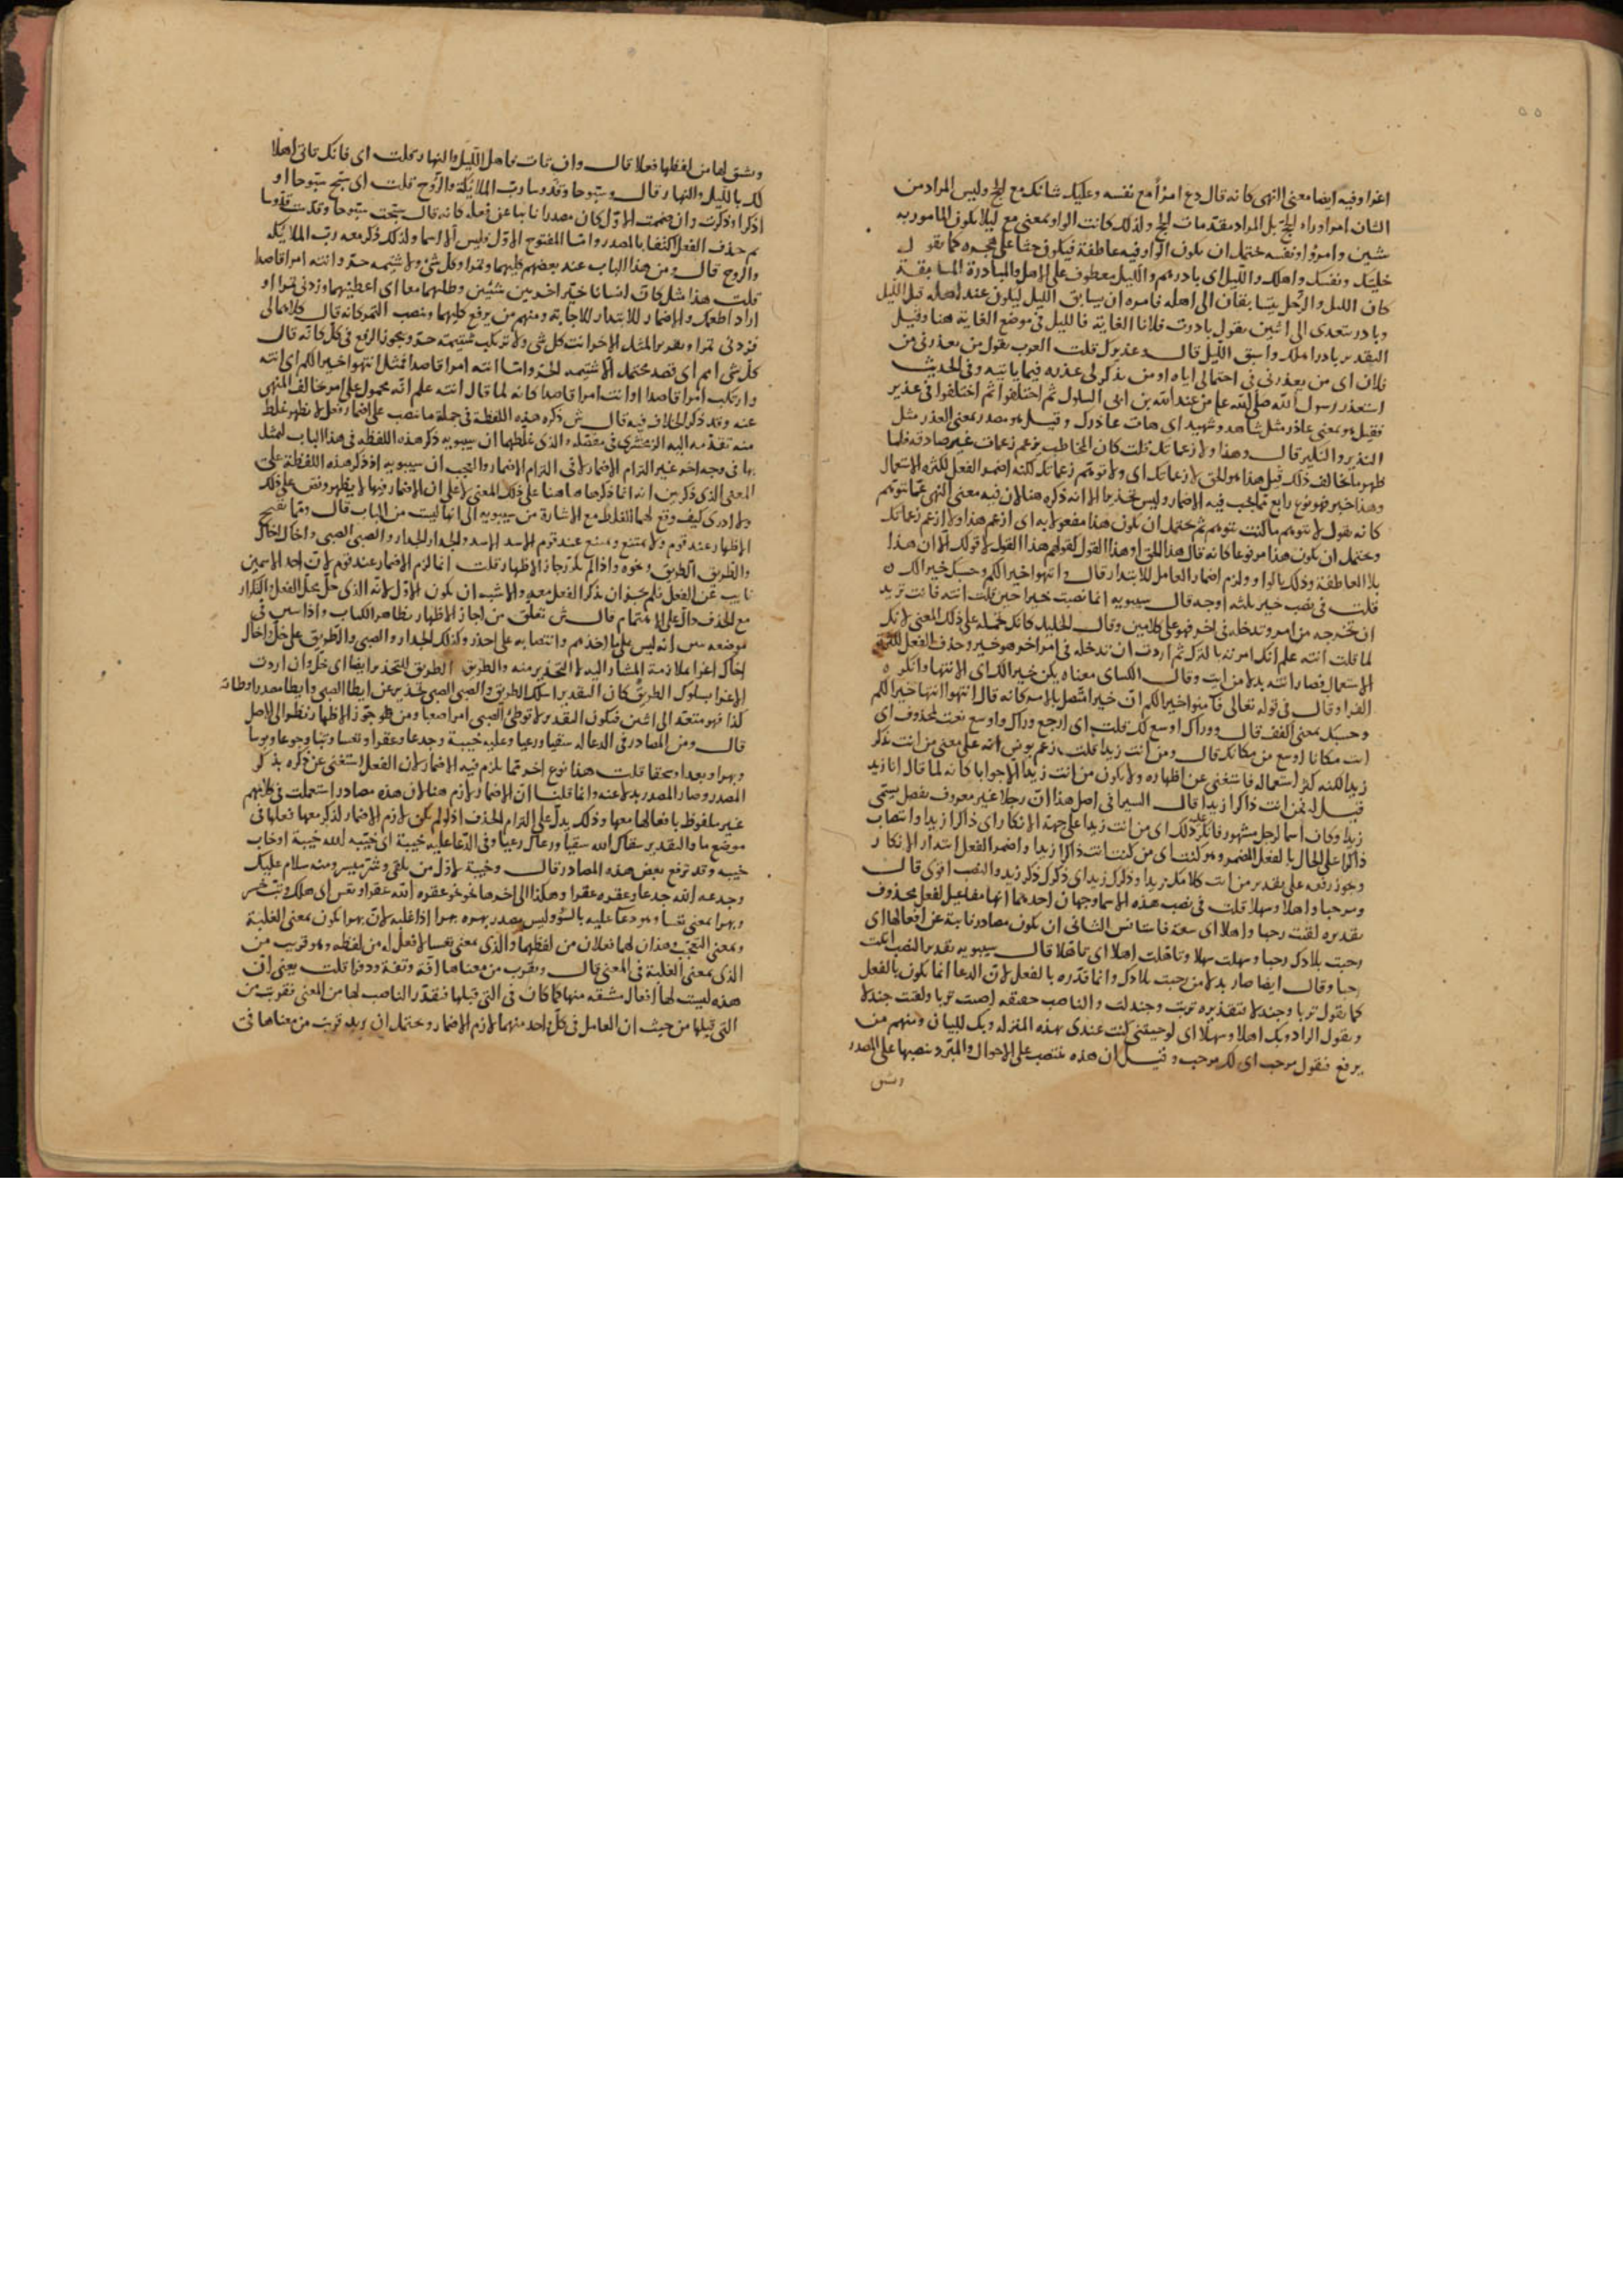 اغرا وفيه ايضا معنى النهى كانه قال دع امرأ مع نفسه وعليك شانك مع الحج وليس المراد من
الشان امرا وراء الحج بل المراد مقدمات الحج ولذلك كانت الواو بمعنى مع ليلا يكون المامور به
شيئين وامرؤا ونفسه يحتمل ان يكون الواو فيه عاطفة فيكون حثا على هجره كما تقول
خليتك ونفسك واهلك والليل اى بادرهم والليل معطوف على الاهل والمبادرة المسابقة
كان الليل والرجل يتسابقان الى اهله فامره ان يسابق الليل ليكون عند اهله قبل الليل
وبادر يتعدى الى اثنين يقول بادرت فلانا الغاية فالليل فى موضع الغاية هنا وقيل
التقدير بادر اهلك واسبق الليل قال وعذيرك قلت العرب يقول من يعذرنى من
فلان اى من يعذرنى فى احتمالى اياه او من يذكر لى عذره فيما ياتيه وفى الحديث
استعذر رسول الله صلى الله عليه من عبد الله بن ابى السلول ثم اختلفوا ثم اختلفوا فى عذير
فقيل هو بمعنى عاذر مثل شاهد وشهيد اى هات عاذرك وقيل هو مصدر بمعنى العذر مثل
النذير والنكير قال وهذا ولا زعماتك قلت كان المخاطب يزعم زعمات غير صادقة فلما
ظهر ما خالف ذلك قيل هذا هو الحق لا زعماتك اى ولا توهم زعماتك لكنه اضمر الفعل لكثرة الاستعمال
وهذا خبر فهو نوع رابع مما يجب فيه الاضمار وليس تحذيرا الا انه ذكره هنا لان فيه معنى النهى عما تتوهم
كانه يقول لا تتوهم ما كنت تتوهم ثم يحتمل ان يكون هذا مفعولا به اى ازعم هذا ولا ازعم زعماتك
ويحتمل ان يكون هذا مرفوعا كانه قال هذا الحق او هذا القول كقولهم هذا القول لا قولك الا ان هذا
بلا العاطفة وذلك بالواو ولزم اضمار العامل للابتدا قال وانتهوا خيرا لكم وحسبك خيرا لك
قلت فى نصب خير ثلثه اوجه قال سيبويه انما نصبت خيرا حين قلت انته فانت تريد
ان تخرجه من امر وتدخله فى اخر فهو على كلامين وقال الخليل كانك تحمله على ذلك المعنى لانك
لما قلت انته علم انك امرته بالترك ثم اردت ان تدخله فى امر اخر هو خير وحذف الفعل لكثرة
الاستعمال فصار انته بدلا من ايت وقال الكساى معناه يكن خيرا لك اى الانتها وانكره
الفرا وقال فى قوله تعالى فامنوا خيرا لكم ان خيرا متصل بالامر كانه قال انتهوا انتها خيرا لكم
وحسبك بمعنى اكفف قال ووراك اوسع لك قلت اى ارجع وراك واوسع نعت لمحذوف اى
ايت مكانا اوسع من مكانك قال ومن انت زيدا قلت زعم يونس انه على معنى من انت تذكر
زيدا لكنه كثر استعماله فاستغنى عن اظهاره ولا يكون من انت زيدا الا جوابا كانه لما قال انا زيد
قيل له فمن انت ذاكرا زيدا قال السيرافى اصل هذا ان رجلا غير معروف بفضل يسمى
زيدا وكان اسما لرجل مشهور فانكر عليه ذلك اى من انت زيدا على جهة الانكار اى ذاكرا زيدا وانتصاب
ذاكرا على الحال بالفعل المضمر وهو كنت اى من كنت انت ذاكرا زيدا واضمر الفعل ابتدا الانكار
ويجوز رفعه على تقدير من انت كلامك زيد او ذكرك زيد اى ذكرك ذكر زيد والنصب اقوى قال
ومرحبا واهلا وسهلا قلت فى نصب هذه الاسما وجهان احدهما انها مفاعيل لفعل محذوف
تقديره لقيت رحبا واهلا اى سعة فاستانس الثانى ان يكون مصادر نايبة عن افعالها اى
رحبت بلادك رحبا وسهلت سهلا وتاهلت اهلا اى تاهلا قال سيبويه تقدير النصب
رحبا وقال ايضا صار بدلا من رحبت بلادك وانما قدره بالفعل لان الدعا انما يكون بالفعل
كما تقول تربا وجندلا بتقديره تربت وجندلت والناصب حقيقة اصبت تربا ولقيت جندلا
وتقول الراد وبك اهلا وسهلا اى لو جيتنى كنت عندى بهذه المنزله وبك للبيان ومنهم من
يرفع فيقول مرحب اى لك مرحب وقيل ان هذه تنتصب على الاحوال والمبرد ينصبها على المصدر
ويشق
ويشق لها من لفظها فعلا قال وان تات فاهل الليل والنهار قلت اى فانك تاتى اهلا
لك بالليل والنهار قال وسبوحا وقدوسا رب الملائكة والروح قلت اى سبح سبوحا او
اذكر او ذكرت وان ضممت الاول كان مصدرا نايبا عن فعله كانه قال سبحت سبوحا وقدست قدوسا
ثم حذف الفعل اكتفا بالمصدر واما المفتوح الاول فليس الا اسما ولذلك ذكر معه رب الملائكة
والروح قال ومن هذا الباب عند بعضهم كليهما وتمرا وكل شئ ولا شتيمة حر وانته امرا قاصدا
قلت هذا مثل كان انسانا خير اخر بين شيئين وطلبهما معا اى اعطنيهما وزدنى تمرا او
اراد اطعمك والاضمار للابتدا للاجابة ومنهم من يرفع كليهما وينصب التمر كانه قال كلاهما لى
وزدنى تمرا وتقدير المثل الاخر ائت كل شئ ولا ترتكب شتيمة حر ويجوز الرفع فى كل كانه قال
كل شئ امم اى قصد محتمل الا شتيمة الحر واما انته امرا قاصدا فمثل انتهوا خيرا لكم اى انته
وارتكب امرا قاصدا او ائت امرا قاصدا كانه لما قال انته علم انه محمول على امر يخالف المنهى
عنه وقد ذكر الخلاف فيه قال ش ذكره هذه اللفظة فى جملة ما نصب على اضمار فعل لا يظهر غلط
منه تقدمه اليه الزمخشرى فى مفصله والذى غلطهما ان سيبويه ذكر هذه اللفظه فى هذا الباب ليمثل
بها فى وجه اخر غير التزام الاضمار لا فى التزام الاضمار والعجب ان سيبويه اذ ذكر هذه اللفظة على
المعنى الذى ذكر بين انه انما ذكرها هاهنا على ذلك المعنى لا على ان الاضمار فيها لا يظهر ونص على ذلك
ولا ادرى كيف وقع لهما الغلط مع الاشارة من سيبويه الى انها ليست من الباب قال ومما يقبح
الاظهار عند قوم ولا يمتنع ويمتنع عند قوم الاسد الاسد والجدار الجدار والصبى الصبى واخاك اخاك
والطريق الطريق ونحوه واذا لم يكرر جاز الاظهار قلت انما لزم الاضمار عند قوم لان احد الاسمين
نايب عن الفعل فلم يجز ان يذكر الفعل معه والاشبه ان يكون الاول لانه الذى حل محل الفعل والتكرار
مع الحذف دال على الاهتمام قال ش تعلق من اجاز الاظهار بظاهر الكتاب واذا
موضعه انه ليس وانتصابه على احذر وكذلك الجدار والصبى والطريق على خل اخاك
اخاك اغرا ملازمة المشار اليه لا التحذير منه والطريق الطريق التحذير ايضا اى خل وان اردت
الاغرا بسلوك الطريق كان التقدير اسلك الطريق والصبى الصبى تحذير عن ايطا الصبى وايطا مصدر اوطاته
كذا فهو متعد الى اثنين فيكون التقدير لا توطئ الصبى امرا صعبا ومن جوز الاظهار نظر الى الاصل
قال ومن المصادر فى الدعا له سقيا ورعيا وعليه خيبة وجدعا وعقرا وتعسا وتبا وجوعا وبوسا
وبهرا وبعدا وسحقا قلت هذا نوع اخر مما يلزم فيه الاضمار لان الفعل استغنى عن ذكره بذكر
المصدر وصار المصدر بدلا عنه وانما قلنا ان الاضمار لازم هنا لان هذه مصادر استعملت فى كلامهم
غير ملفوظ بافعالها معها وذلك يدل على التزام الحذف اذ لو لم يكن لازم الاضمار لذكر معها فعلها فى
موضع ما والتقدير سقاك الله سقيا ورعاك رعيا وفى الدعا عليه خيبة اى خيبه الله خيبة او خاب
خيبه وقد ترفع بعض هذه المصادر قال وخيبة لاول من يلقى وشر ميسر ومنه سلام عليك
وجدعه الله جدعا وعقره عقرا وهكذا الى اخرها نحو عقره الله عقرا وتعس اى هلك وتب خسر
وبهرا بمعنى تعسا وهو دعا عليه بالسؤ وليس بمصدر بهره بهرا اذا غلبه لان بهرا يكون بمعنى الغلبة
وبمعنى التعجب وهذان لهما فعلان من لفظهما والذى بمعنى تعسا لا فعل له من لفظه وهو قريب من
الذى بمعنى الغلبة فى المعنى قال ويقرب من معناها افة وتفة ودفرا قلت يعنى ان
هذه ليست لها افعال مشتقه منها كما كان فى التى قبلها فيقدر الناصب لها من المعنى فقربت من
التى قبلها من حيث ان العامل فى كل واحد منهما لازم الاضمار ويحتمل ان يريد قربت من معناها فى